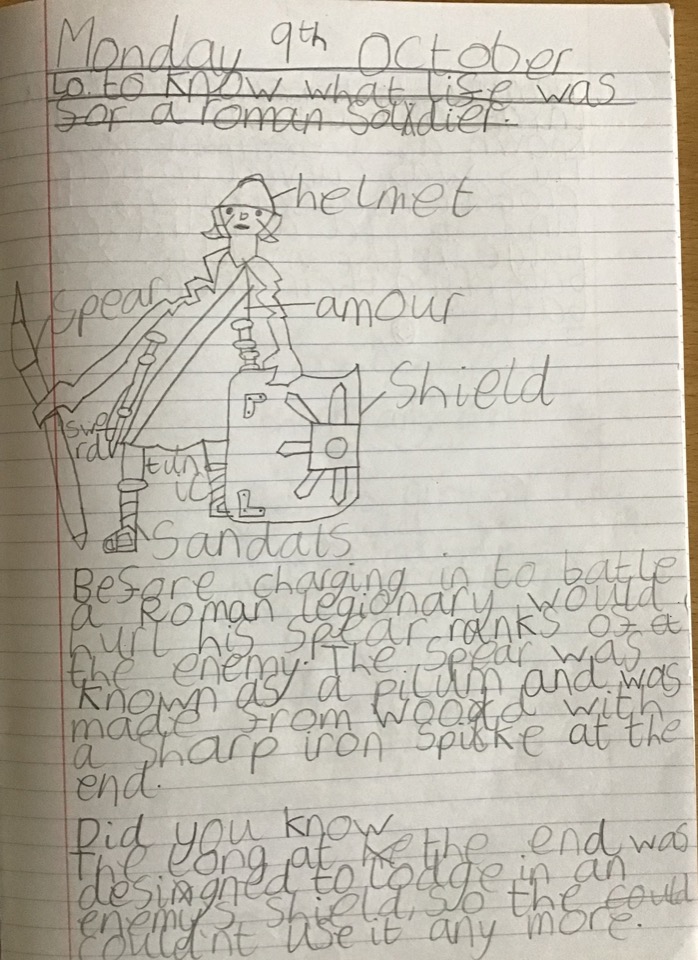 Monday 9th October
Lo. to know what life was
for a roman soldier.
helmet
Spear
amour
Shield
swo
rd
tun
ic
Sandals
Before charging in to batle
a Roman legionary would
hurl his spear ranks of
the enemy. The spear was
known as a pilum and was
made from wood with
a sharp iron spike at the
end.
Did you know
The long at the end was
designed to lodge in an
enemy's shield, so the could
couldn't use it any more.